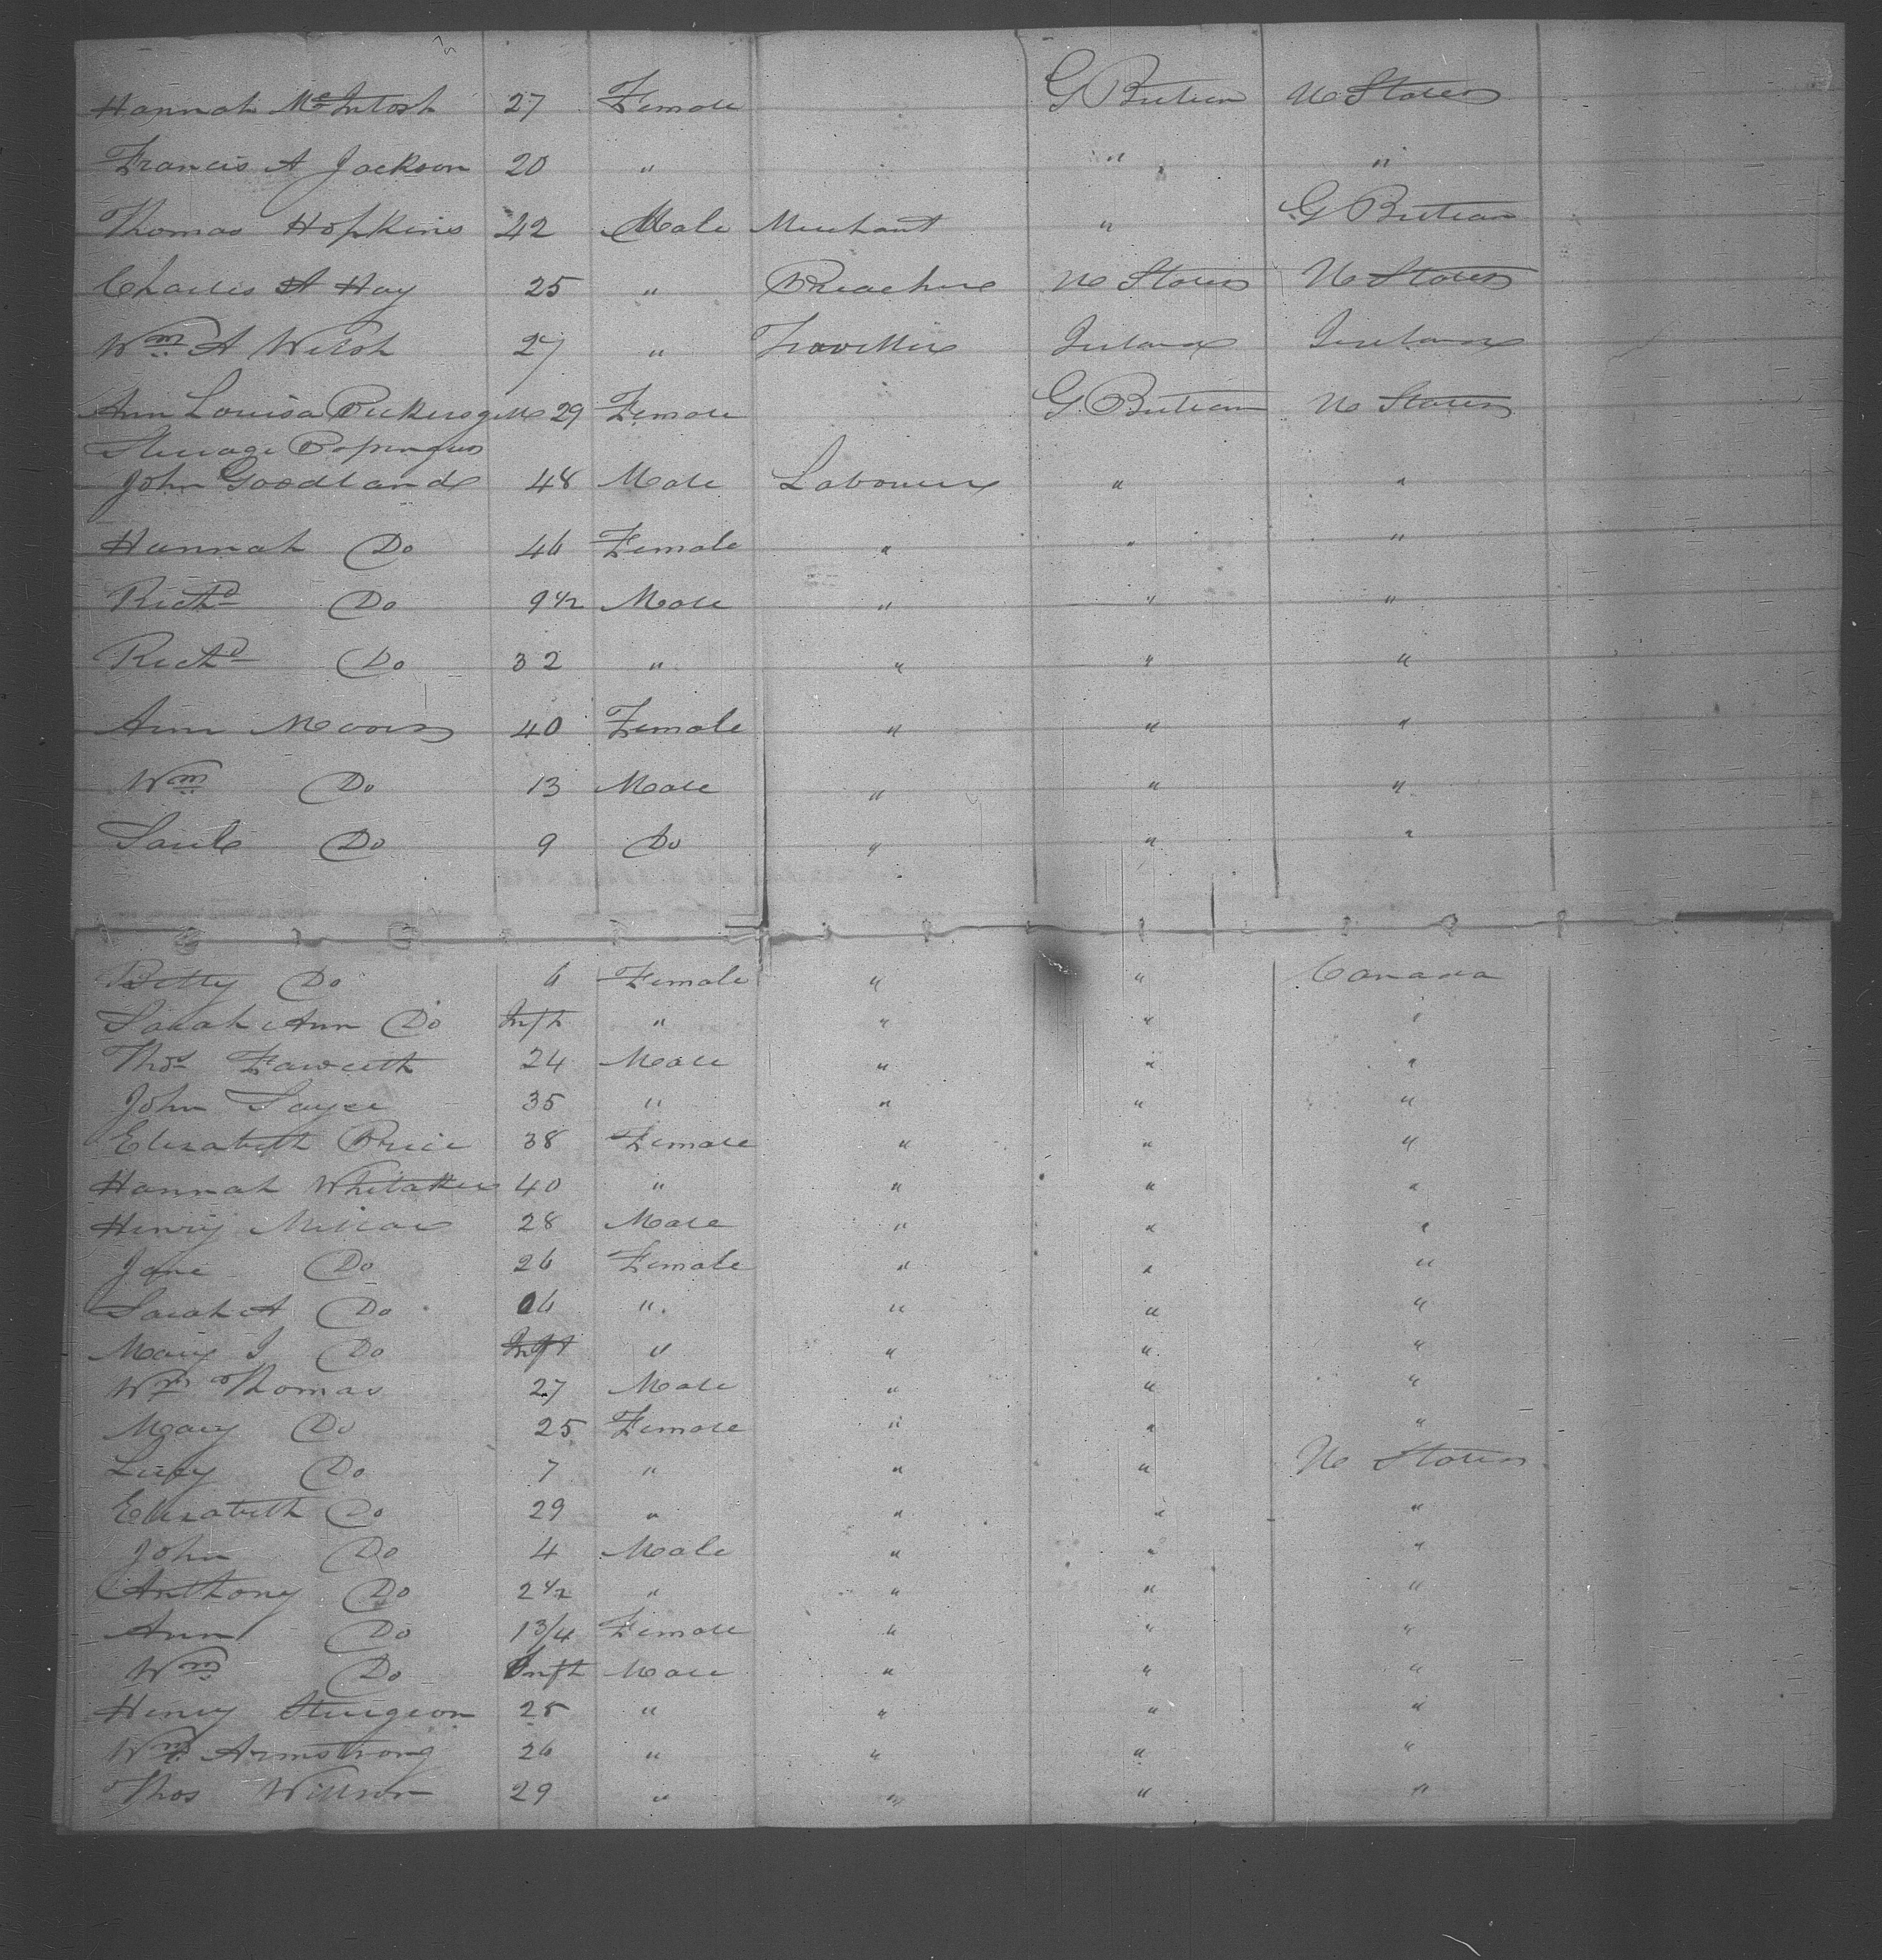 Hannah McIntosh 27 Female G Britain U States
Francis A Jackson 20 " " "
Thomas Hopkins 42 Male Merchant " G Britain
Charles A Hay 25 " Preacher U States U States
Wm A Welsh 27 " Traveller Ireland Ireland
Ann Louisa Pickersgill 29 Female G. Britain U States
Steerage Passengers
John Goodland 48 Male Labourer " "
Hannah Do 46 Female " " "
Richd Do 9 1/2 Male " " "
Richd Do 32 " " " "
Ann Moors 40 Female " " "
Wm Do 13 Male " " "
Do 9 Do " " "
Betty Do 6 Female " " Canada
Sarah Ann Do Inft " " " "
Thos Fawcett 24 Male " " "
John Sayce 35 " " " "
Elizabeth Price 38 Female " " "
Hannah Whitaker 40 " " " "
Henry Millar 28 Male " " "
Jane Do 26 Female " " "
Sarah A Do 06 " " " "
Mary J Do Inft " " " "
Wm Thomas 27 Male " " "
Mary Do 25 Female " " "
Lucy Do 7 " " " U States
Elizabeth Do 29 " " " "
John Do 4 Male " " "
Anthony Do 2 1/2 " " " "
Ann Do 1 3/4 Female " " "
Wm Do Inft Male " " "
Henry Sturgeon 28 " " " "
Wm Armstrong 26 " " " "
Thos Willson 29 " " " "